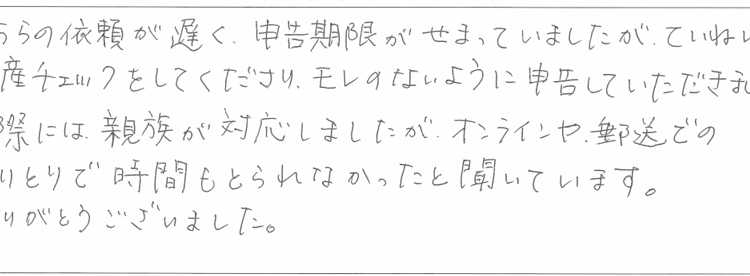 ちらの依頼が遅く、申告期限がせまっていましたが、ていねい
産チェックをしてくださり、モレのないように申告していただきまし
際には、親族が対応しましたが、オンラインや、郵送での
りとりで時間もとられなかったと聞いています。
りがとうございました。